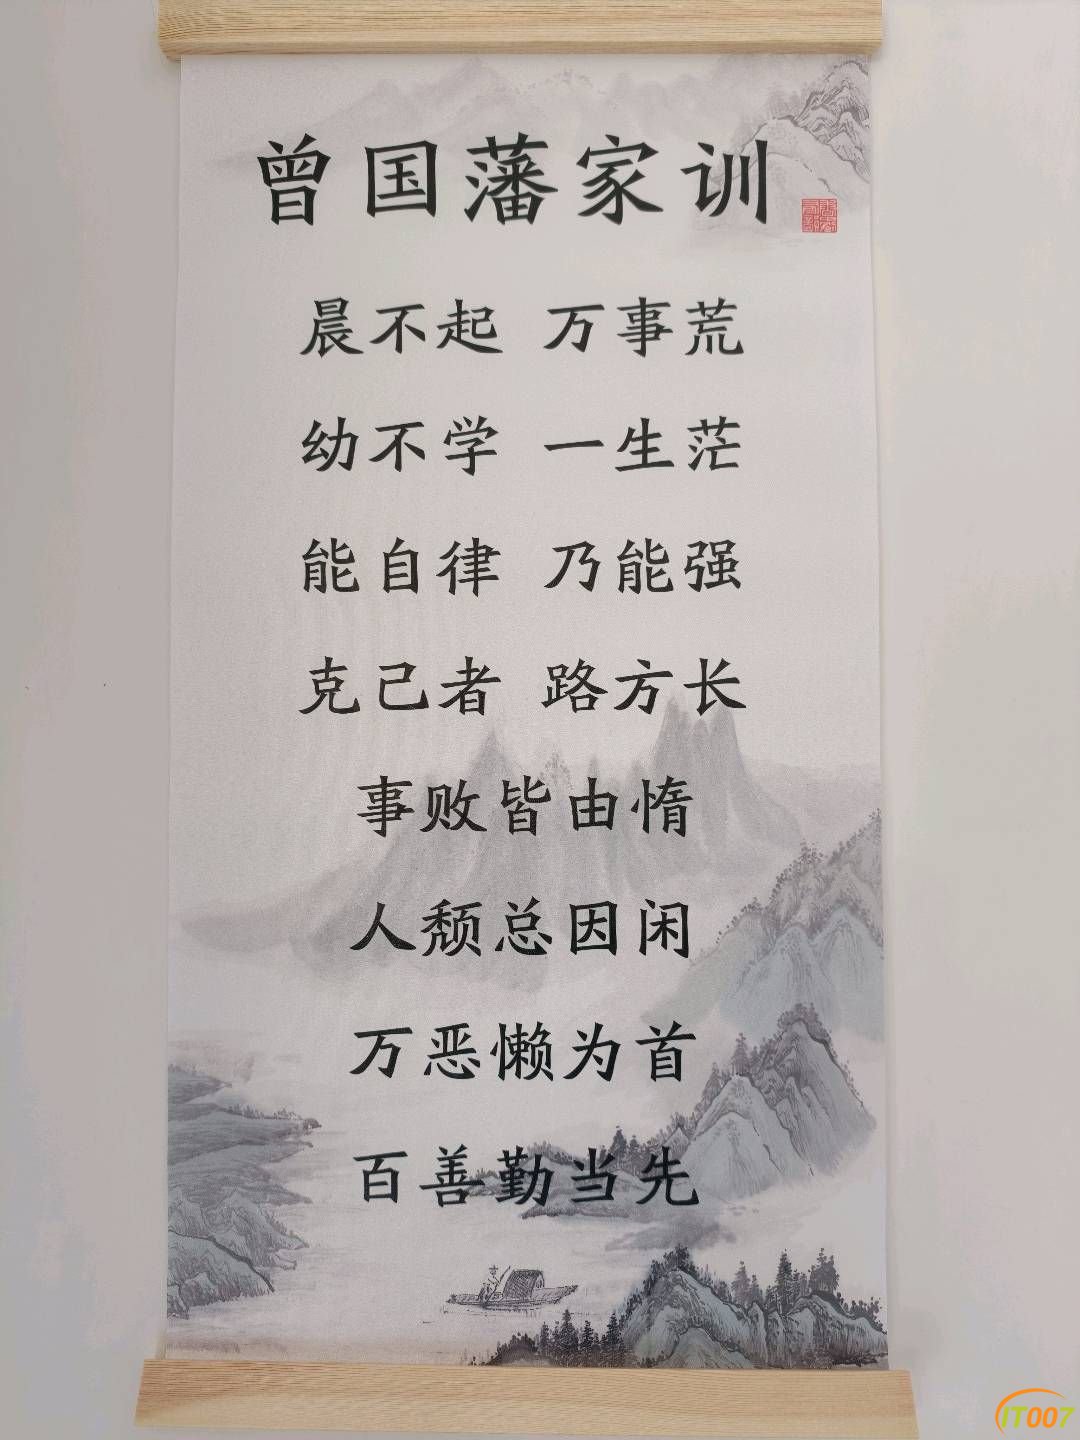 曾国藩家训
晨不起 万事荒
幼不学 一生茫
能自律 乃能强
克己者 路方长
事败皆由惰
人颓总因闲
万恶懒为首
百善勤当先
IT007